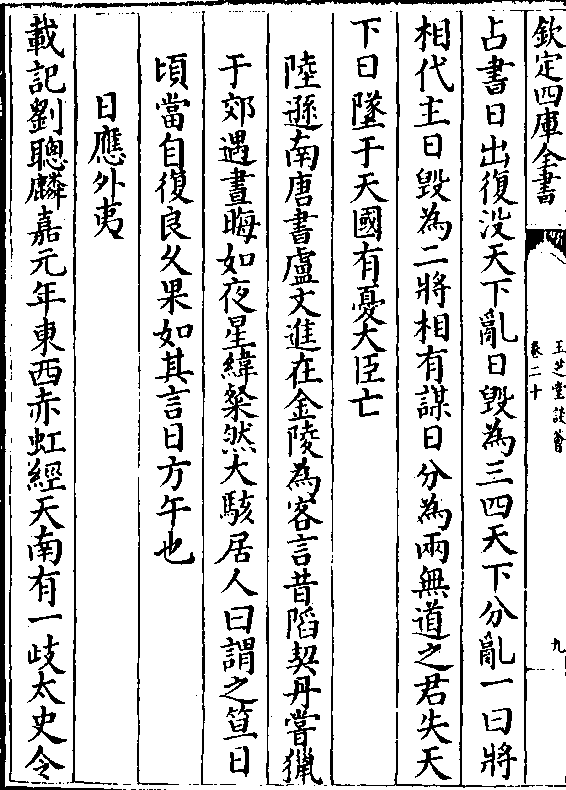 欽定四庫全書
玉芝堂談薈
卷二十
九
占書日出復没天下亂日毁為三四天下分亂一曰將
相代主日毁為二將相有謀日分為兩無道之君失天
下日墜于天國有憂大臣亡
陸遜南唐書盧文進在金陵為客言昔䧟契丹嘗獵
于郊遇晝晦如夜星緯粲然大駭居人曰謂之笪日
頃當自復良久果如其言日方午也
日應外夷
載記劉聰麟嘉元年東西赤虹經天南有一歧太史令